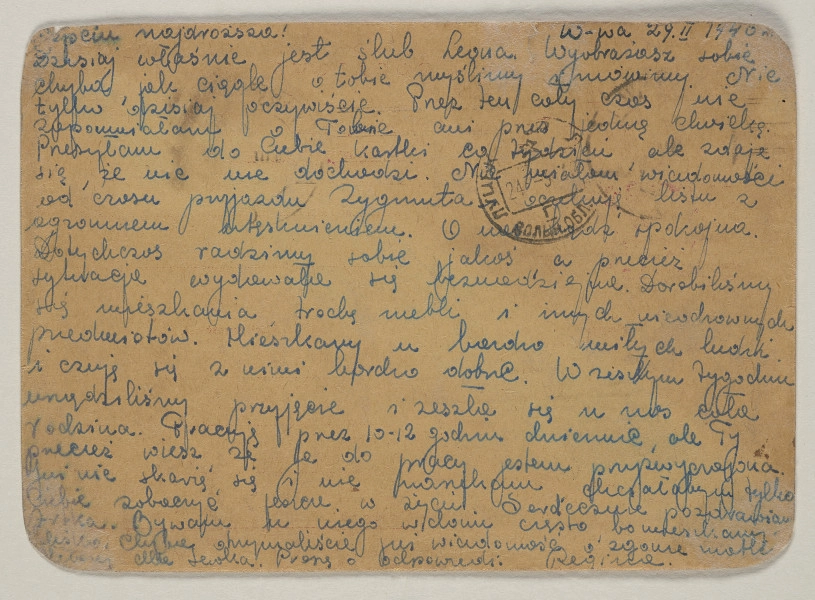 najdroższa! W-wa 29.II 1940
Dzisiaj właśnie jest ślub Legna. Wyobrażasz sobie
chyba jak ciągle o tobie myślimy i mówimy. Nie
tylko dzisiaj oczywiście. Przez ten cały czas nie
zapomniałam o Tobie ani przez jedną chwilkę.
Przesyłam do Ciebie kartki co tydzień ale zdaje
się że nic nie dochodzi. Nie miałam wiadomości
od czasu przyjazdu Zygmunta i oczekuję listu z
ogromnem utęsknieniem. O nas bądź spokojna.
Dotychczas radzimy sobie jakoś a przecież
sytuacja wydawała się beznadziejna. Dorobiliśmy
się mieszkania trochę mebli i innych niezdrownych
przedmiotów. Mieszkamy u bardzo miłych ludzi
i czuję się z nimi bardzo dobrze. W zeszłym tygodniu
urządziliśmy przyjęcie i zeszła się u nas cała
rodzina. Pracuję przez 10-12 godzin dziennie, ale Ty
przecież wiesz że ja do pracy jestem przyzwyczajona.
Już nie skarżę się i nie narzekam chciałabym tylko
Ciebie zobaczyć jeszcze w życiu. Serdecznie pozdrawiam
Bywam u niego w domu często bo mieszkamy
blisko. Chyba otrzymaliście już wiadomość o zgonie matki
dla Proszę o odpowiedź. Regina.